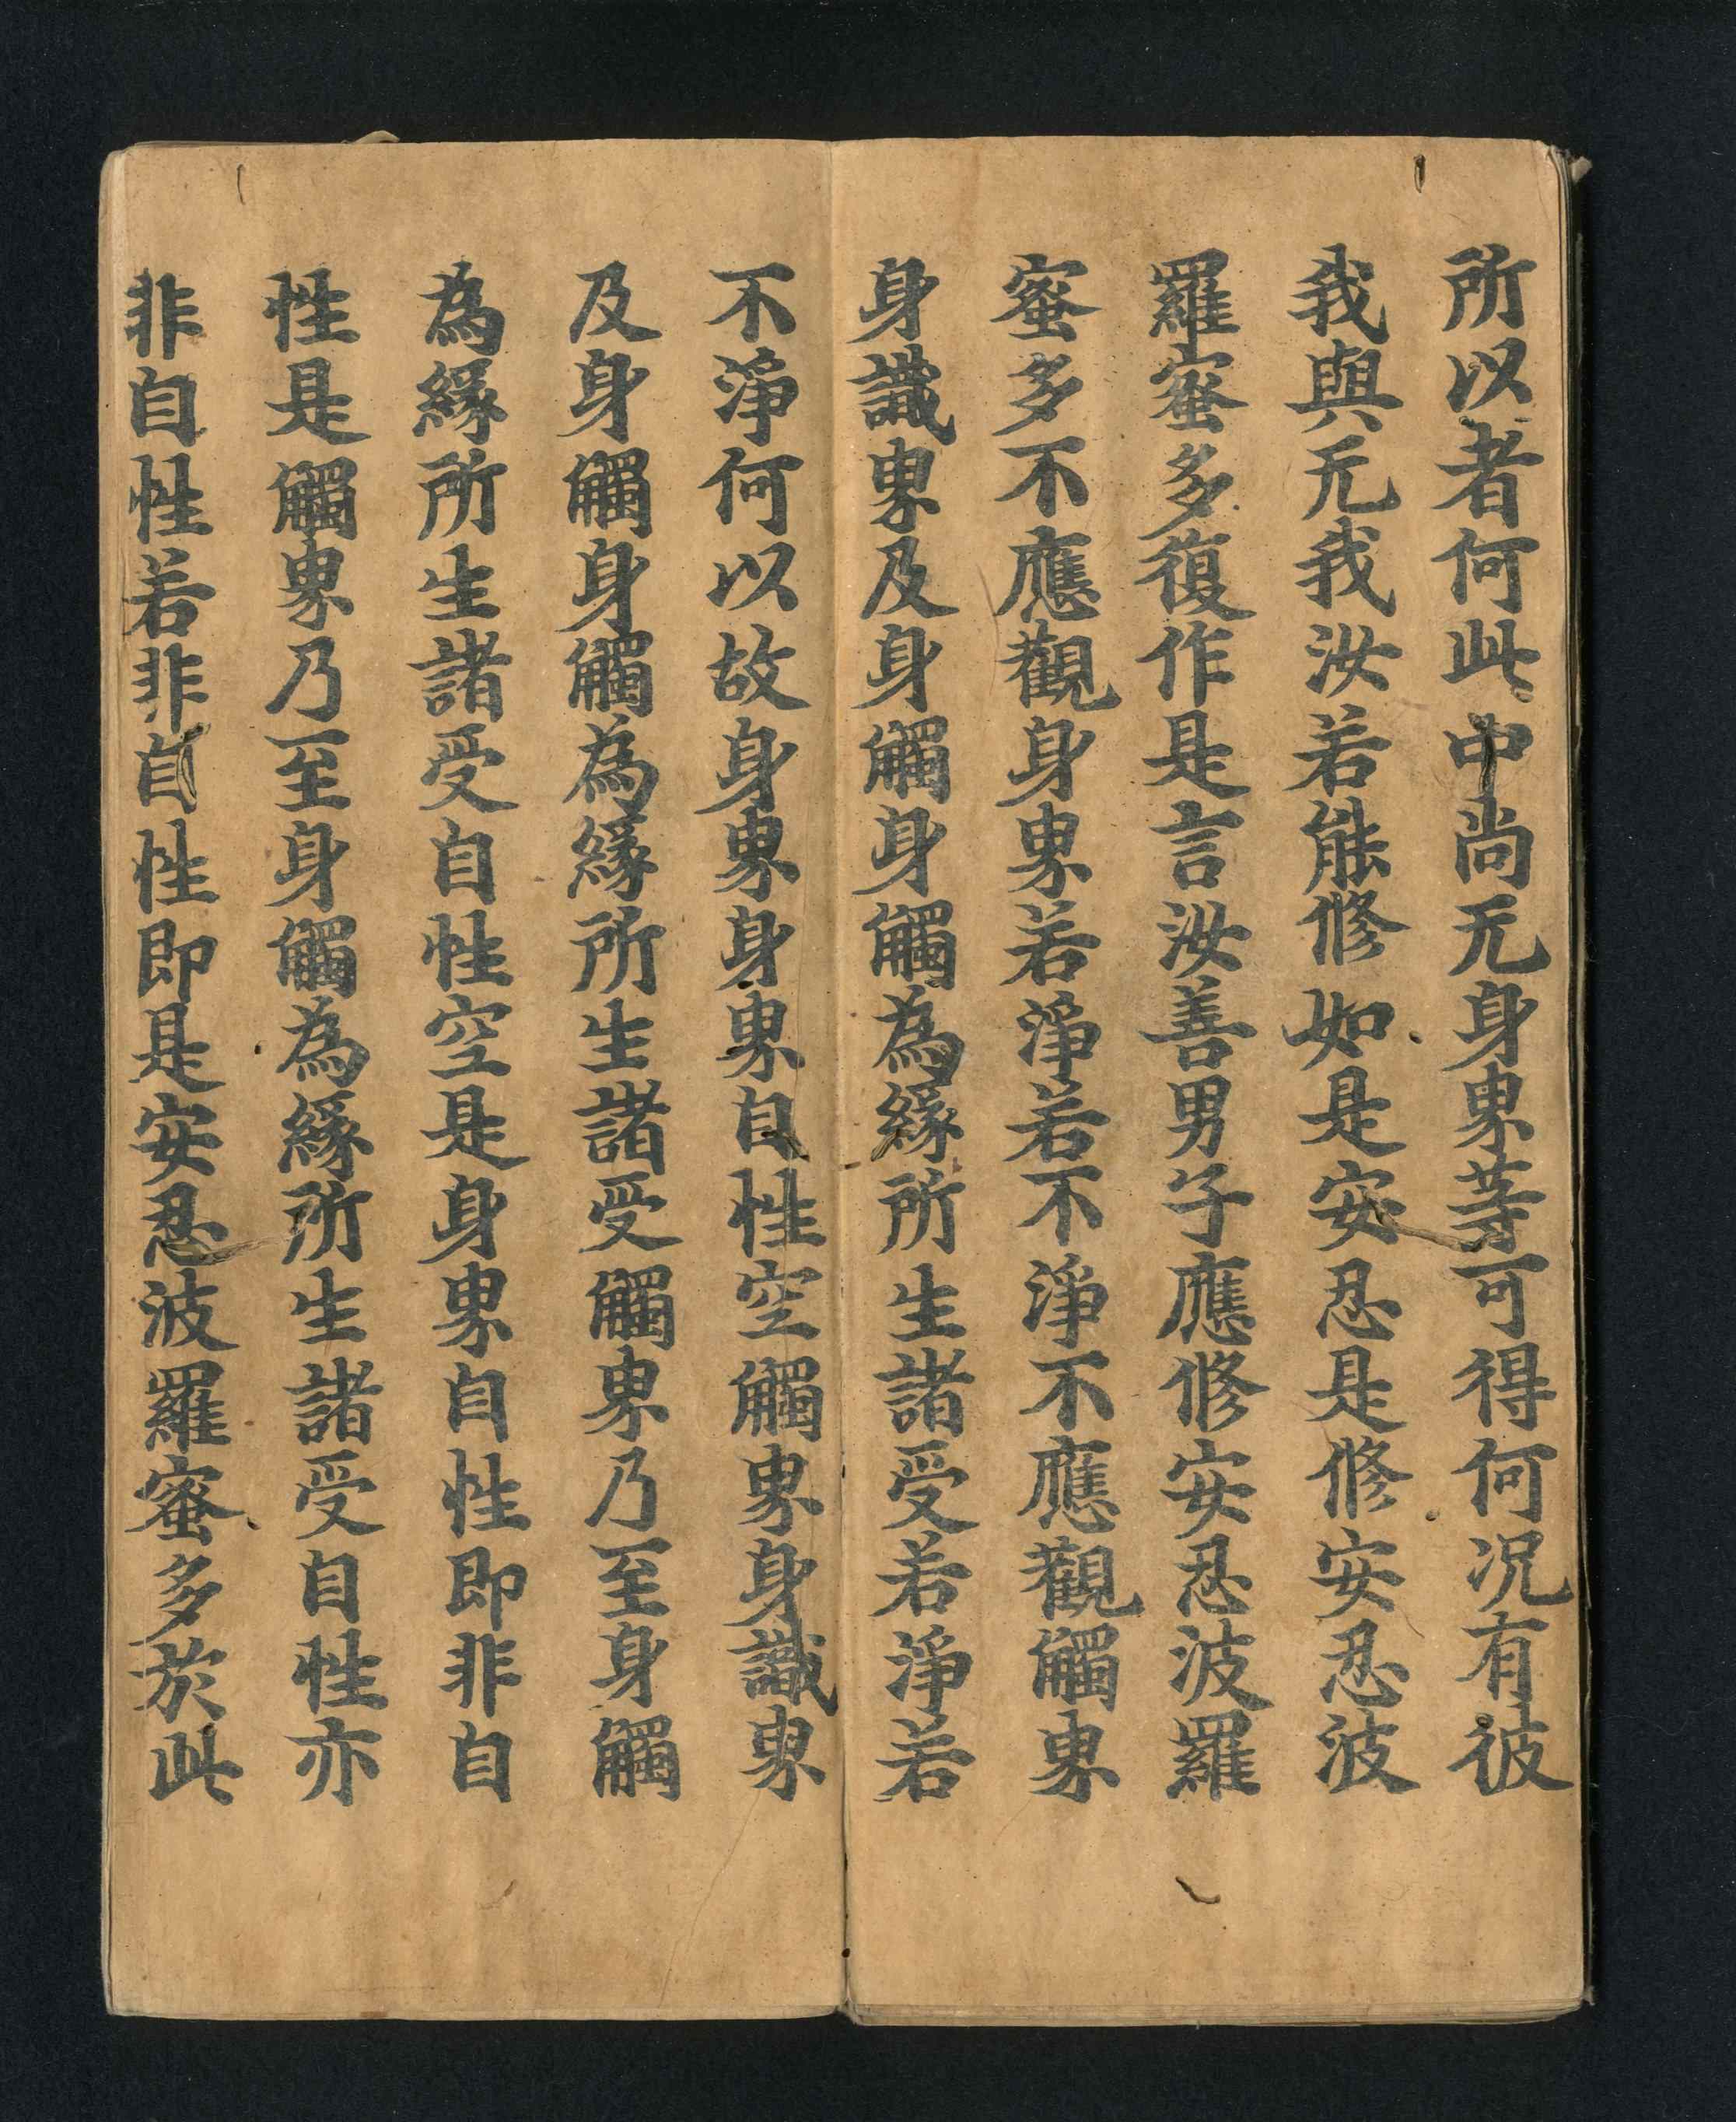 所以者何此中尚无身界等可得何況有彼
我與无我汝若能修如是安忍是修安忍波
羅蜜多復作是言汝善男子應修安忍波羅
蜜多不應觀身界若淨若不淨不應觀觸界
身識界及身觸身觸為緣所生諸受若淨若
不淨何以故身界身界自性空觸界身識界
及身觸身觸為緣所生諸受觸界乃至身觸
為緣所生諸受自性空是身界自性即非自
性是觸界乃至身觸為緣所生諸受自性亦
非自性若非自性即是安忍波羅蜜多於此